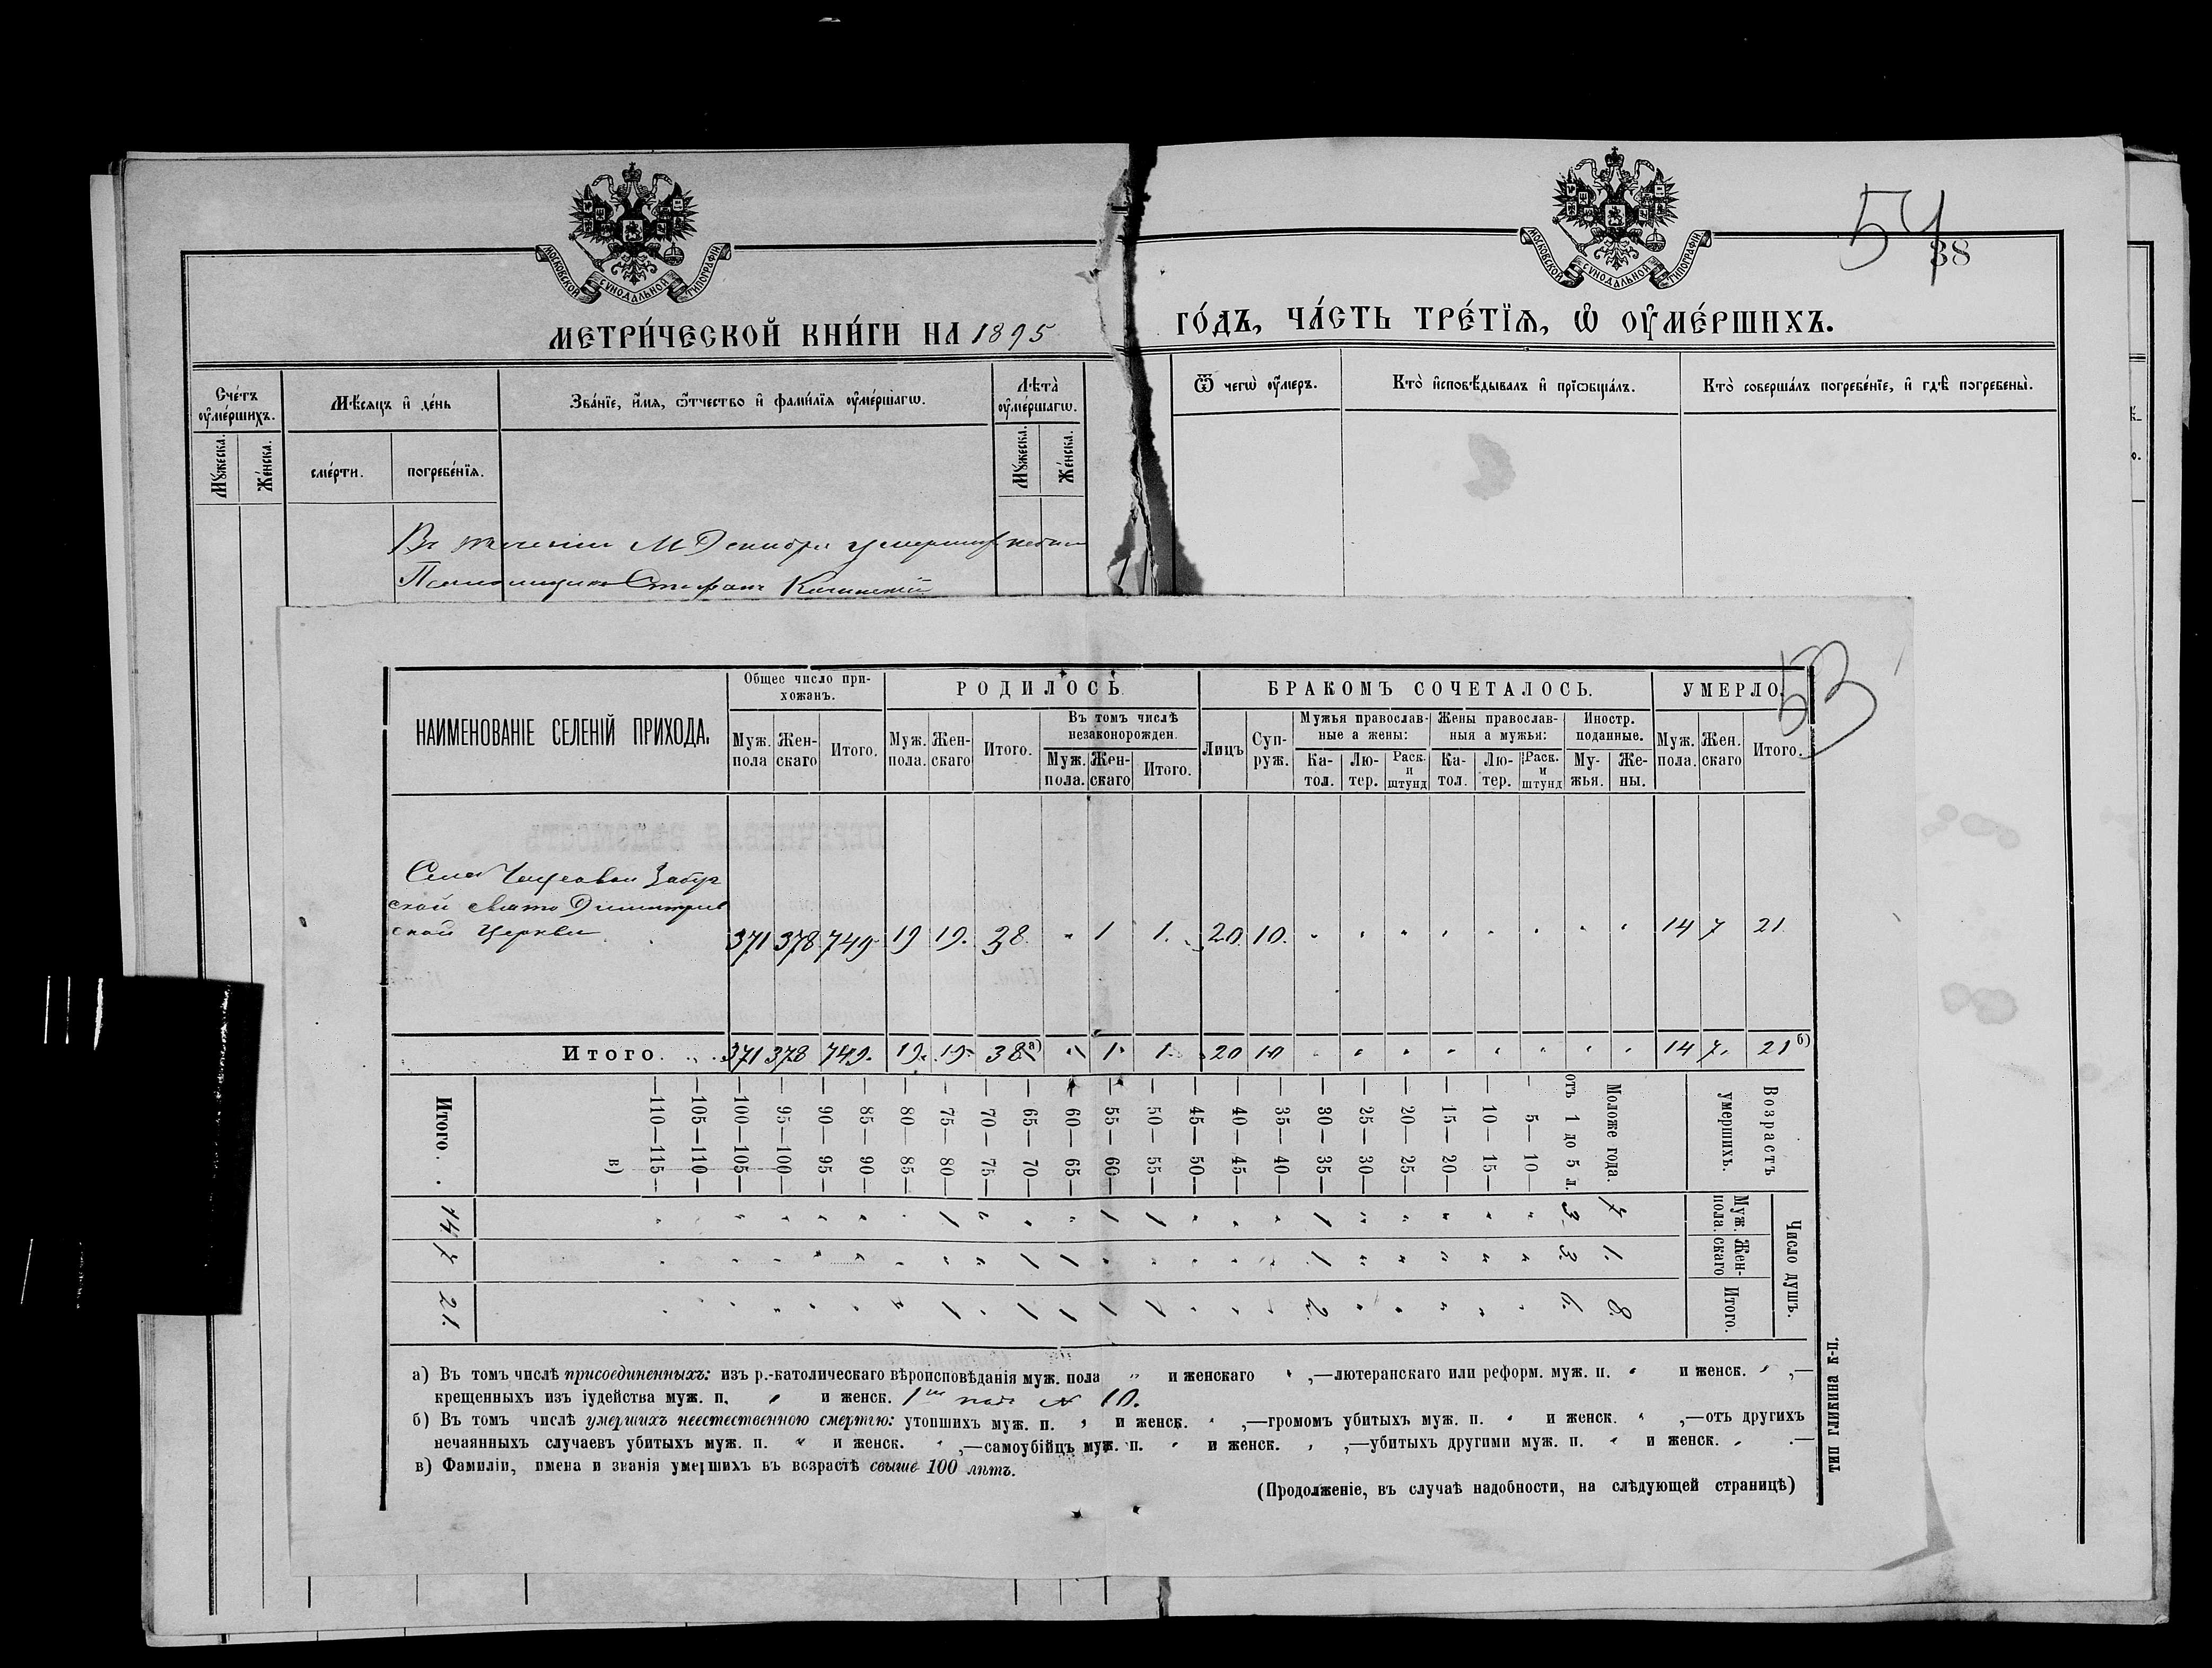 54
38
МОСКОВСКОЙ СѴНОДАЛЬНОЙ ТИПОГРАФІИ
МОСКОВСКОЙ СѴНОДАЛЬНОЙ ТИПОГРАФІИ
МЕТРИ́ЧЕСКОЙ КНИ́ГИ НА 1895 ГО́ДЪ, ЧА́СТЬ ТРЕ́ТЇѦ, Ѡ҆ ОУ҆МЕ́РШИХЪ.
Сче́тъ оу҆ме́ршихъ.
Мꙋ́жеска.
Же́нска.
Мѣ́сѧцъ и҆ де́нь
сме́рти.
погребе́нїѧ.
Зва́нїе, и҆́мѧ, ѻ҆́тчество и҆ фамі́лїѧ оу҆ме́ршагѡ.
Лѣта̀ оу҆ме́ршагѡ.
Мꙋ́жеска.
Же́нска.
Ѿ чегѡ̀ оу҆́меръ.
Кто̀ и҆сповѣ́дывалъ и҆ прїѡбща́лъ.
Кто̀ соверша́лъ погребе́нїе, и҆ гдѣ̀ погребены̀.
Въ теченіи М Декабря умершихъ небыло
Псаломщикъ Стефанъ
53
НАИМЕНОВАНІЕ СЕЛЕНІЙ ПРИХОДА.
Общее число прихожанъ.
Муж. пола Женскаго Итого.
РОДИЛОСЬ.
Муж. пола. Женскаго Итого.
Въ томъ числѣ незаконорожден.
Муж. пола. Женскаго Итого.
БРАКОМЪ СОЧЕТАЛОСЬ.
Лицъ Супруж.
Мужья православные а жены:
Катол. Лютер. Раск. и штунд
Жены православныя а мужья:
Катол. Лютер. Раск. и штунд
Иностр. поданные.
Мужья. Жены.
УМЕРЛО.
Муж. пола. Жен. скаго Итого.
Села
ской Свято Димитриев
ской Церкви
371 378 749 19 19. 38. " 1 1. 20. 10. " " " " " " " " 14 7 21.
Итого. . . 371 378 749. 19. 19. 38 а) " 1. 1. 20 10 " " " " " " " " 14 7. 21 б)
Возрастъ умершихъ.
Моложе года.
отъ 1 до 5 л.
— 5— 10—
— 10— 15—
— 15— 20—
— 20— 25—
— 25— 30—
— 30— 35—
— 35— 40—
— 40— 45—
— 45— 50—
— 50— 55—
— 55— 60—
— 60— 65—
— 65— 70—
— 70— 75—
— 75— 80—
— 80— 85—
— 85— 90—
— 90— 95—
— 95—100—
—100—105—
—105—110—
—110—115—
в)
Итого . .
Число душъ.
Муж. пола. 7 3. " " " " " 1 " " " 1 1 " " " 1 " " " " " " " 14
Женскаго 1. 3 " " " " " 1 " " " " " 1 1 " " " " " " " " " 7
Итого. 8. 6. " " " " " 2. " " " 1 1 1 1 " 1 " " " " " " " 21.
а) Въ томъ числѣ присоединенныхъ: изъ р.-католическаго вѣроисповѣданія муж. пола " и женскаго " ,—лютеранскаго или реформ. муж. п. " и женск. " ,—
крещенныхъ изъ іудейства муж. п. " и женск. 1 подъ № 10.
б) Въ томъ числѣ умершихъ неестественною смертію: утопшихъ муж. п. " и женск. " ,—громомъ убитыхъ муж. п. " и женск. " ,—отъ другихъ
нечаянныхъ случаевъ убитыхъ муж. п. " и женск. " ,—самоубійцъ муж. п. " и женск. " ,—убитыхъ другими муж. п. " и женск. " .—
в) Фамиліи, имена и званія умершихъ въ возрастѣ свыше 100 лѣтъ.
(Продолженіе, въ случаѣ надобности, на слѣдующей страницѣ)
ТИП ГЛИКИНА К-П.